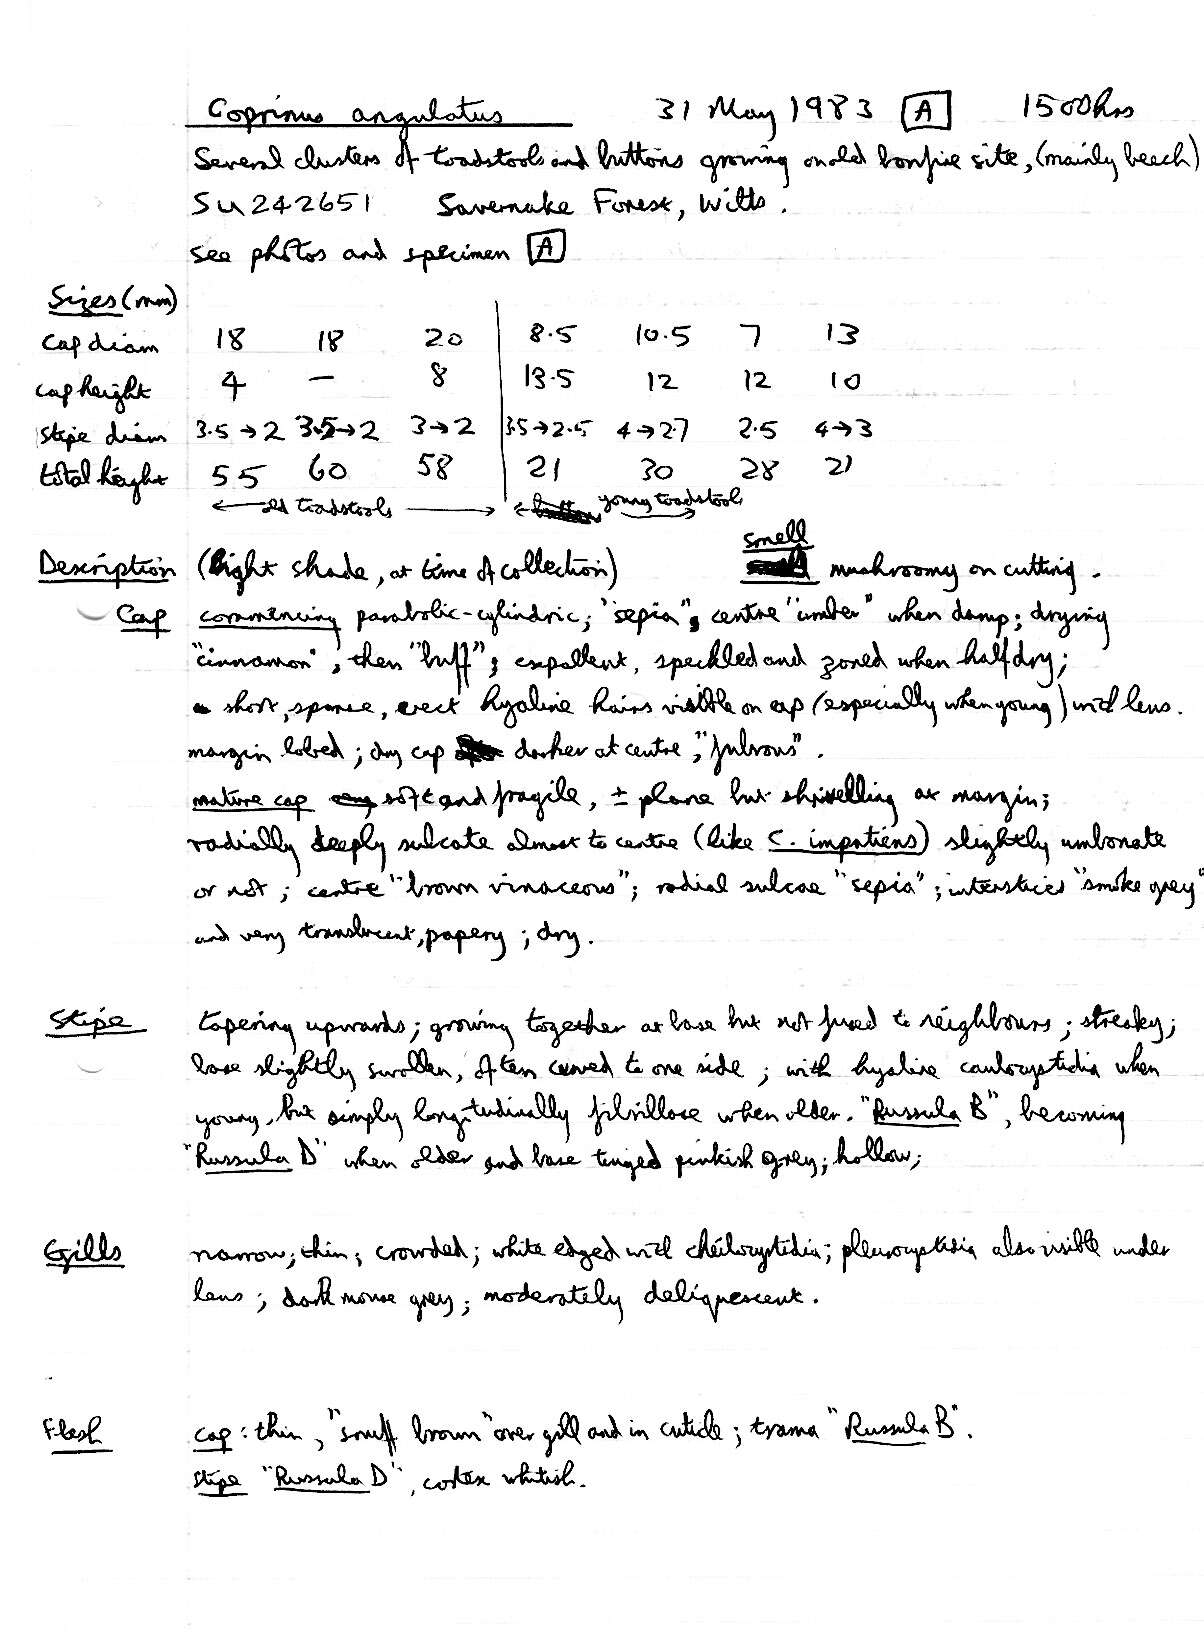 Coprinus angulatus 31 May 1983 A 1500hrs
Several clusters of toadstools and buttons growing on old bonfire site, (mainly beech)
SU242651 Savernake Forest, Wilts.
see photos and specimen A
Sizes (mm)
cap diam 18 18 20 8.5 10.5 7 13
cap height 4 — 8 13.5 12 12 10
stipe diam 3.5→2 3.5→2 3→2 3.5→2.5 4→2.7 2.5 4→3
total height 55 60 58 21 30 28 21
old toadstools young toadstools
smell
Description (light shade, at time of collection) mushroomy on cutting.
Cap commencing parabolic-cylindric; "sepia", centre "umber" when damp; drying
"cinnamon", then "buff"; expallent, speckled and zoned when half dry;
short, sparse, erect hyaline hairs visible on cap (especially when young) with lens.
margin lobed; dry cap darker at centre, "fulvous".
mature cap soft and fragile, ± plane but shrivelling at margin;
radially deeply sulcate almost to centre (like C. impatiens) slightly umbonate
or not; centre "brown vinaceous"; radial sulcae "sepia"; interstices "smoke grey"
and very translucent, papery; dry.
Stipe tapering upwards; growing together at base but not fused to neighbours; streaky;
base slightly swollen, often curved to one side; with hyaline caulocystidia when
young, but simply longitudinally fibrillose when older. "Russula B", becoming
"Russula D" when older and base tinged pinkish grey; hollow;
Gills narrow; thin; crowded; white edged with cheilocystidia; pleurocystidia also visible under
lens; dark mouse grey; moderately deliquescent.
Flesh cap: thin, "snuff brown" over gill and in cuticle; trama "Russula B".
stipe "Russula D", cortex whitish.